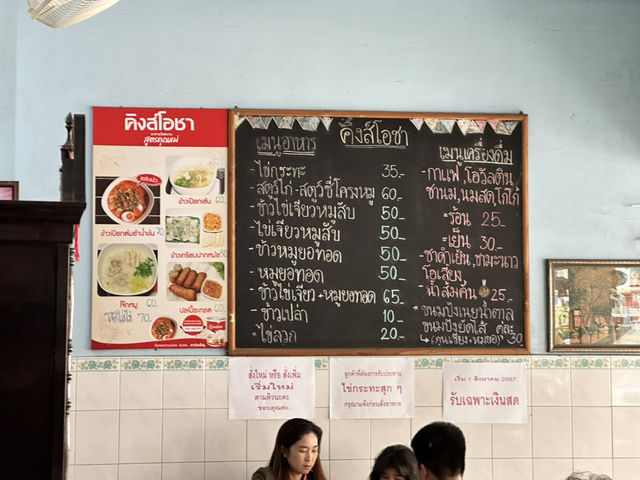 คิงส์โอชา
สูตรคุณแม่
ข้าวเปียกเส้น 60.
ข้าวเปียกต้มยำน้ำข้น 70.
ข้าวเกรียบปากหม้อ 50.
โจ๊กหมู 60.
โจ๊กใส่ไข่ 70.
ปอเปี๊ยะทอด 60.
คิงส์โอชา
เมนูอาหาร
- ไข่กระทะ 35.-
- สตูว์ไก่ - สตูว์ซี่โครงหมู 60.-
- ข้าวไข่เจียวหมูสับ 50.-
- ไข่เจียวหมูสับ 50.-
- ข้าวหมูยอทอด 50.-
- หมูยอทอด 50.-
- ข้าวไข่เจียว + หมูยอทอด 65.-
- ข้าวเปล่า 10.-
- ไข่ลวก 20.-
เมนูเครื่องดื่ม
- กาแฟ, โอวัลติน,
ชานม, นมสด, โกโก้
*ร้อน 25.-
*เย็น 30.-
- ชาดำเย็น, ชามะนาว
โอเลี้ยง
- น้ำส้มคั้น 25.-
*ขนมปังเนยน้ำตาล
ขนมปังยัดไส้ คู่ละ
(กุนเชียง + หมูยอ) 30
สั่งใหม่ หรือ สั่งเพิ่ม
เริ่มใหม่
ตามคิวนะคะ
...ขอบคุณค่ะ...
ลูกค้าที่ต้องการรับประทาน
ไข่กระทะสุก ๆ
กรุณาแจ้งก่อนสั่งอาหาร
เริ่ม 1 สิงหาคม 2567
รับเฉพาะเงินสด